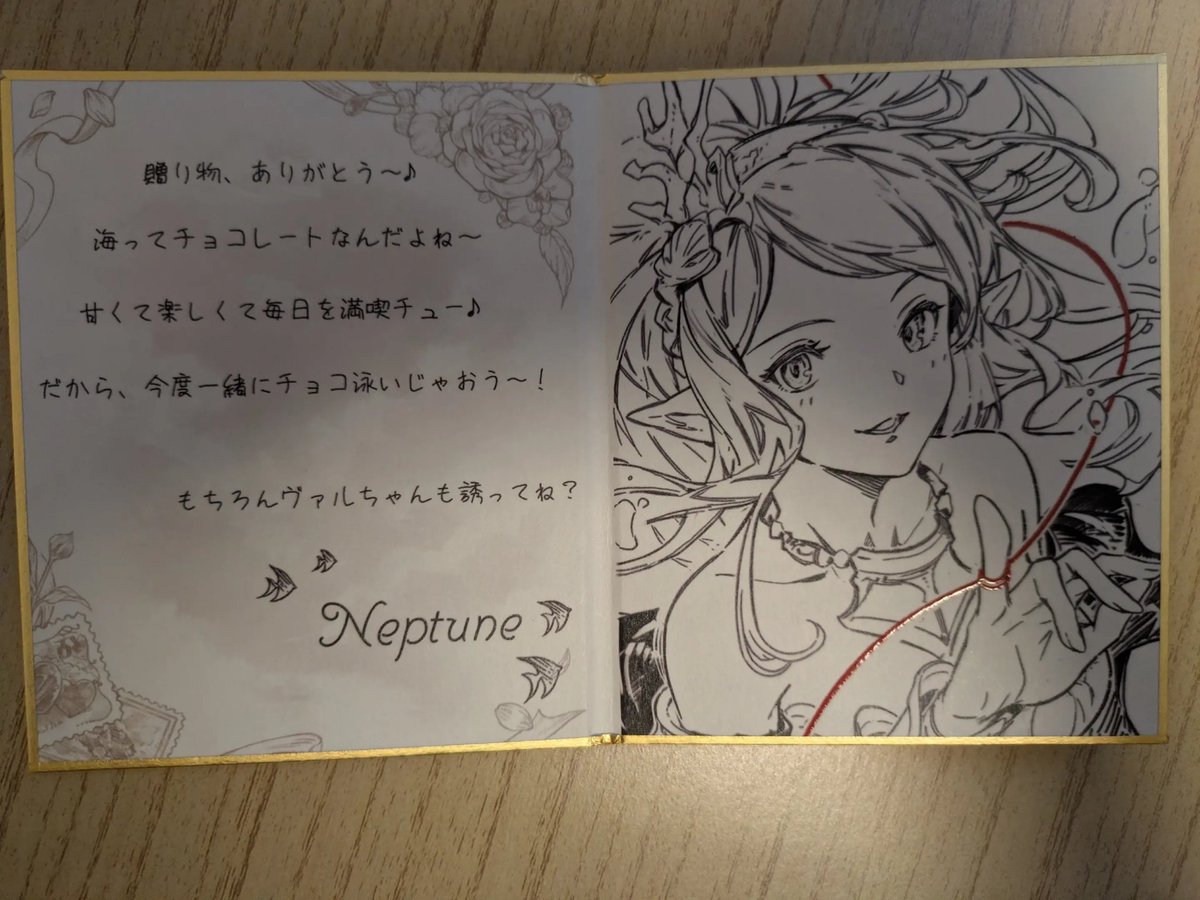 贈り物、ありがとう～♪
海ってチョコレートなんだよね～
甘くて楽しくて毎日を満喫チュー♪
だから、今度一緒にチョコ泳いじゃおう～！
もちろんヴァルちゃんも誘ってね？
Neptune